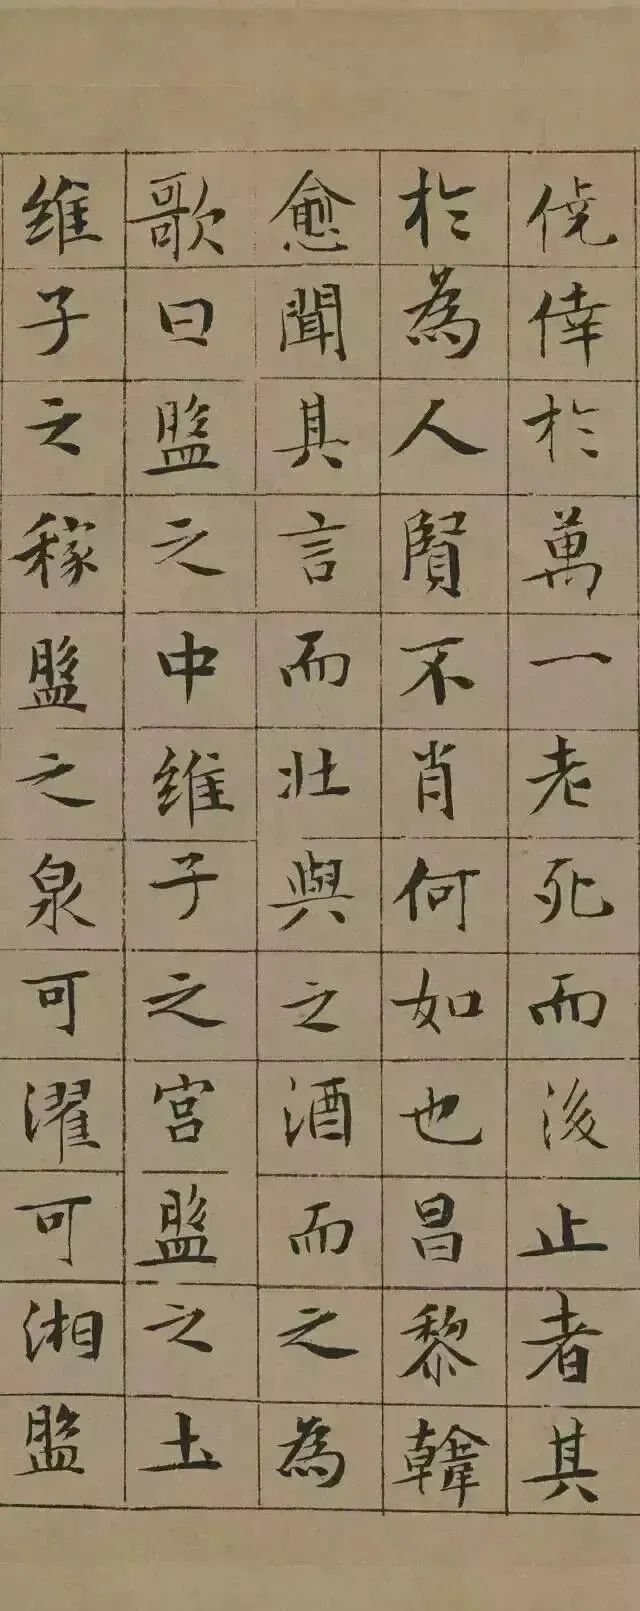 僥倖於萬一老死而後止者其
於為人賢不肖何如也昌黎韓
愈聞其言而壯與之酒而之為
歌曰盤之中維子之宮盤之土
維子之稼盤之泉可濯可湘盤